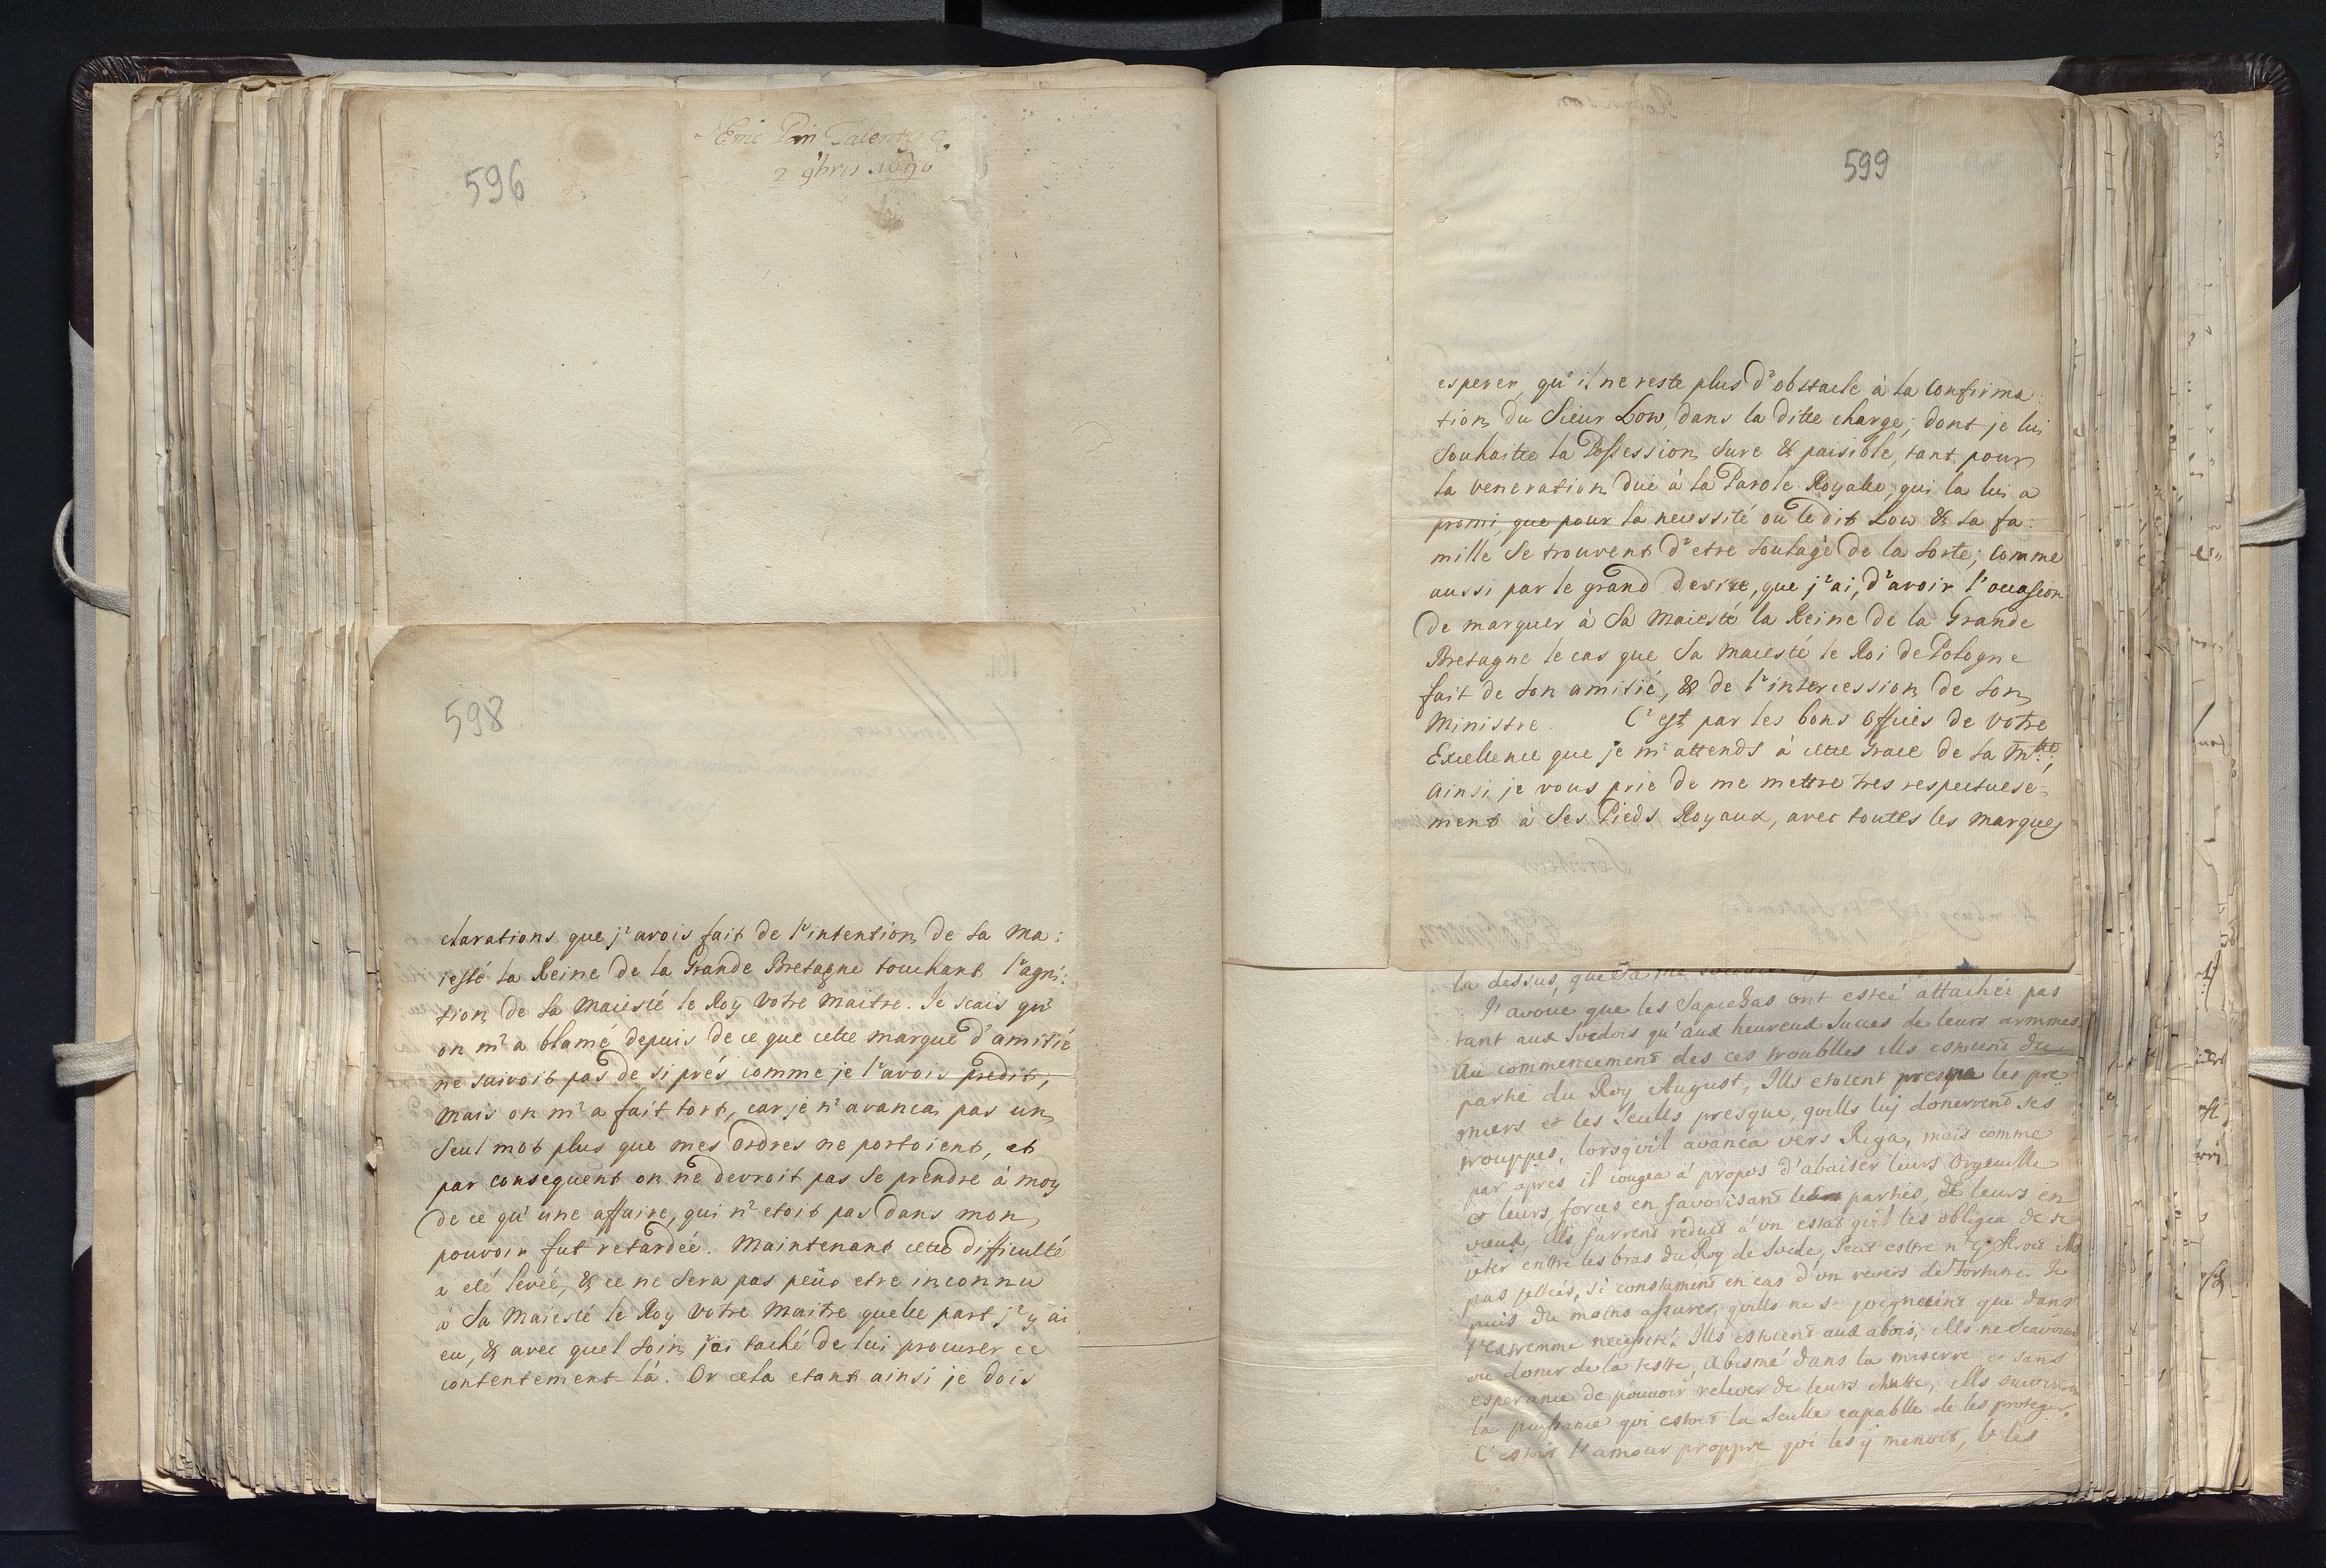 596
Emc Pan Talenty
2 9bris 1690
598
clarations que j'avois fait de l'intention de sa Ma:
jesté la Reine de la Grande Bretagne touchant l'agni:
tion de sa Maiesté le Roy votre maitre. Je scais qu'
on m'a blamé depuis de ce que cette marque d'amitié
ne suivoit pas de si prés comme je l'avois predit,
mais on m'a fait tort, car je n'avancai pas un
seul mot plus que mes ordres ne portoient, et
par consequent on ne devroit pas se prendre à moy
de ce qu'une affaire, qui n'etoit pas dans mon
pouvoir fut retardée. Maintenant cette difficulté
a eté levée, & ce ne sera pas peûtetre inconnu
à Sa Maiesté le Roy votre maitre quelle part j'y ai
eu, & avec quel soin j'ai taché de lui procurer ce
contentement-là. Or cela etant ainsi je dois
599
esperer, qu'il ne reste plus d'obstacle à la confirma:
tion du Sieur Low, dans la ditte charge; dont je lui
souhaitte la Possession sure & paisible, tant pour
la veneration duë à la Parole Royalle, qui la lui a
promi, que pour la necessité où le dit Low & sa fa:
mille se trouvent d'etre soulagé de la sorte; comme
aussi par le grand desire, que j'ai, d'avoir l'occasion
de marquer à Sa Maiesté la Reine de la Grande
Bretagne le cas que Sa Maiesté le Roi de Pologne
fait de son amitié, & de l'intercession de son
Ministre. C'est par les bons offices de votre
Excellence que je m'attends à cette Grace de Sa Mtté;
ainsi je vous prie de me mettre tres respectuese=
ment à Ses Pieds Royaux, avec toutes les marques
la dessus, que
J'avoue que les Sapiehas ont esteé attachéz pas
tant aux Svedois qu'aux heureux succes de leurs armmes
Au commencement des ces troublles ills estoient du
partié du Roy August, Ills etoient presque les pre
miers et les seulls presque, quills luy donerrent ses
trouppes, lorsqu'il avanca vers Riga, mais comme
par apres il iougea á propos d'abaiser leurs orgeuille
et leurs forces en favorisant leurs parties, et leurs en
vieux, ills furrent reduit a'un estat qu'il les obligea de se
ieter entre les bras du Roy de Svede, Peut estre n'y seroit ills
pas jettées, si constament en cas d'un revers de fortune. Je
puis du moins assurer, quills ne se joignoient que dans
l'extremme necessité. Ills estoient aux abois, ills ne scavoient
ou doner de la teste, Abismé dans la miserre et sans
esperance de pouvoir relever de leurs chutte, ills
la puissance qui estoit la seulle capablle de les proteger.
C'estoit l'amour proppre qui les y menoit, & les